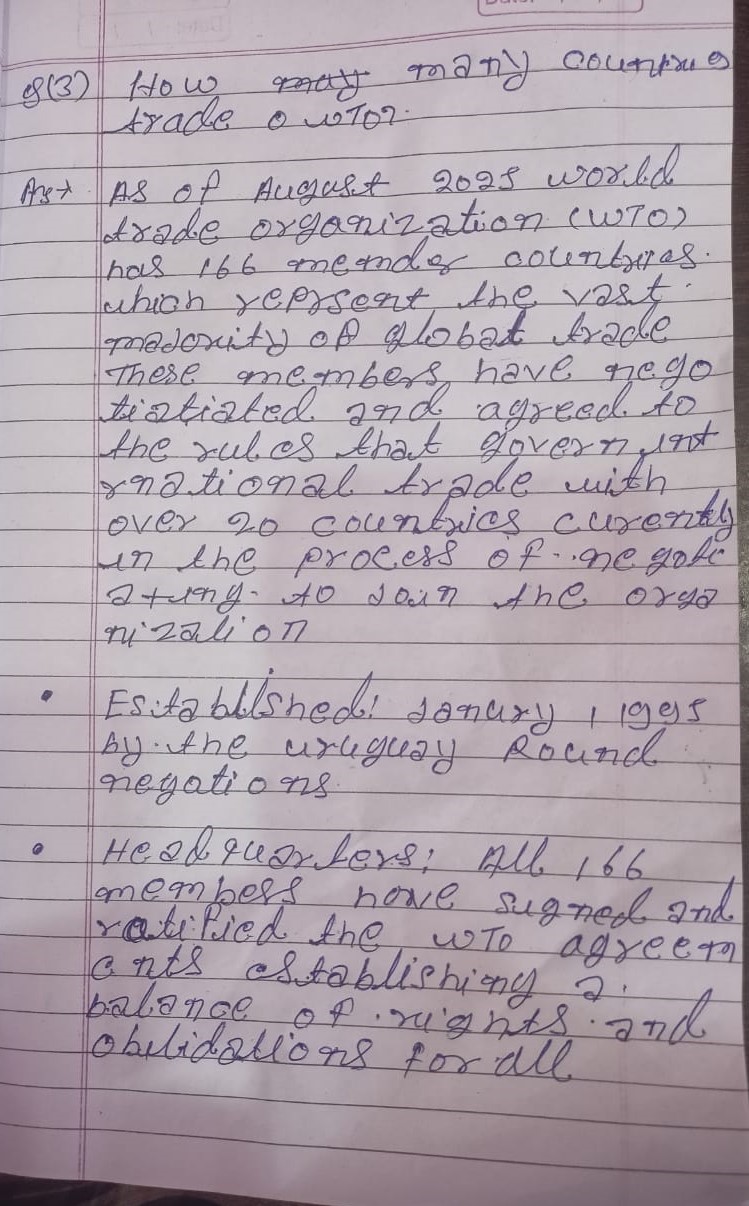 Q(3) How may many countrues
trade o WTO?
Ans→ As of August 2025 world
trade organization (WTO)
has 166 memdor countryes.
which reprsent the vast
madority of global trade
These members have nego
tiatiated and agreed to
the rules that govern int
rnational trade with
over 20 countries curently
in the process of negoti
ating to join the orga
nization
• Established: Janury 1 1995
by the uruguay Round
negations
• Headquarters: All 166
members have sugned and
ratified the WTO agreem
ents establishing a
balance of rights and
obulidations for all